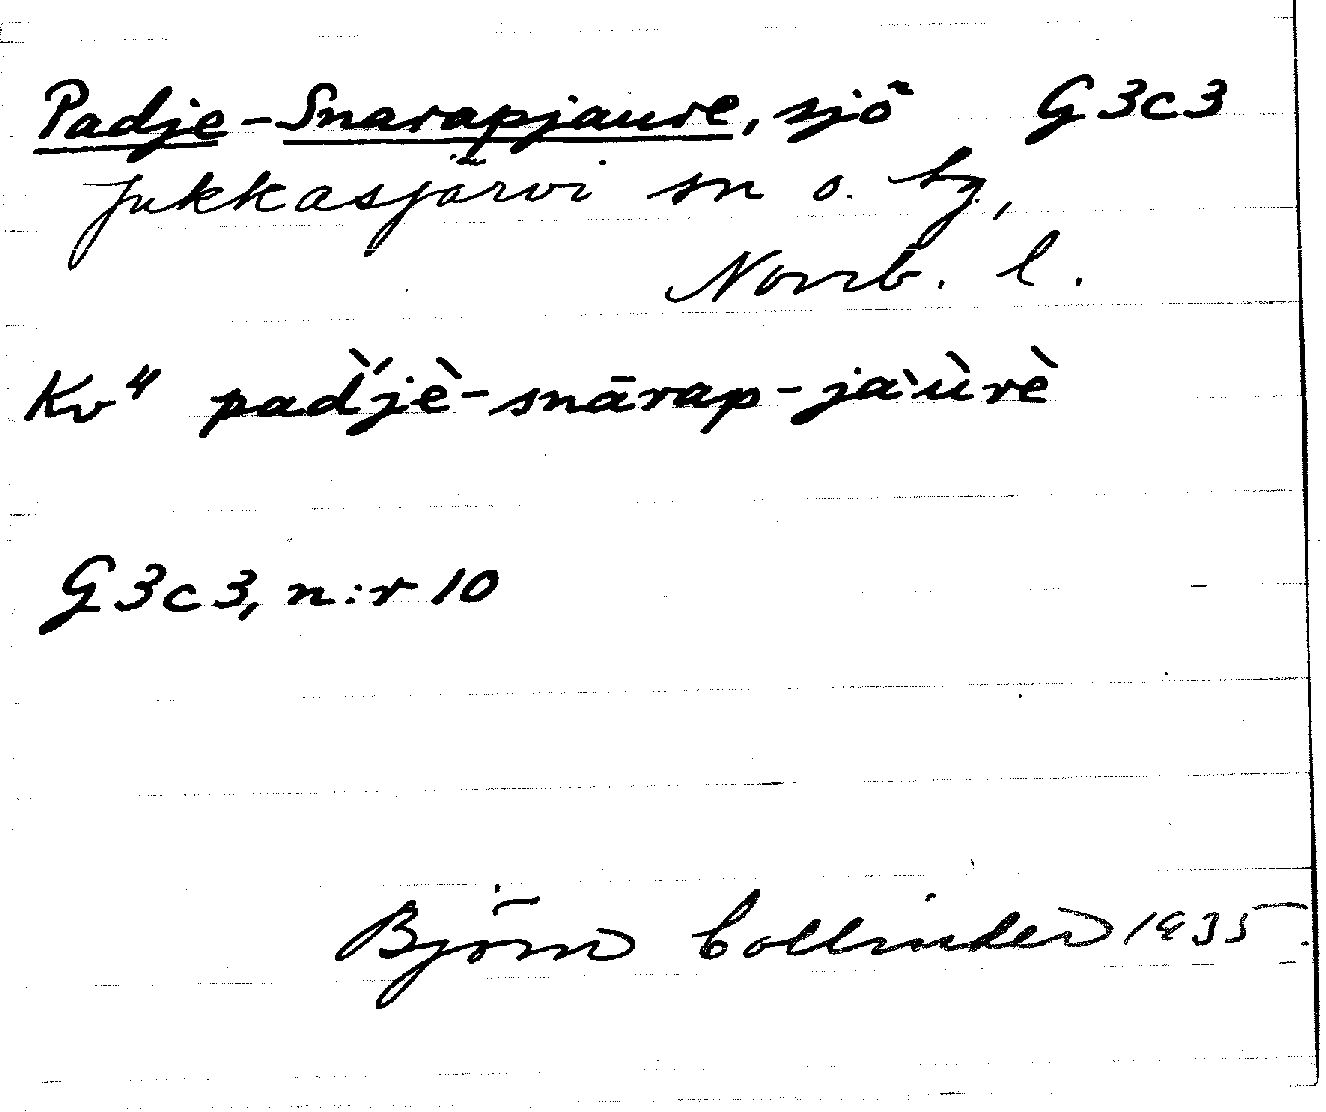 Padje-Snarapjaure, sjö G3c3
Jukkasjärvi sn o. tg,
Norrb. l.
Kv" pad́̀jè-snārap-jaùrè
G3c3, n:r 10
Björn Collinder 1935.